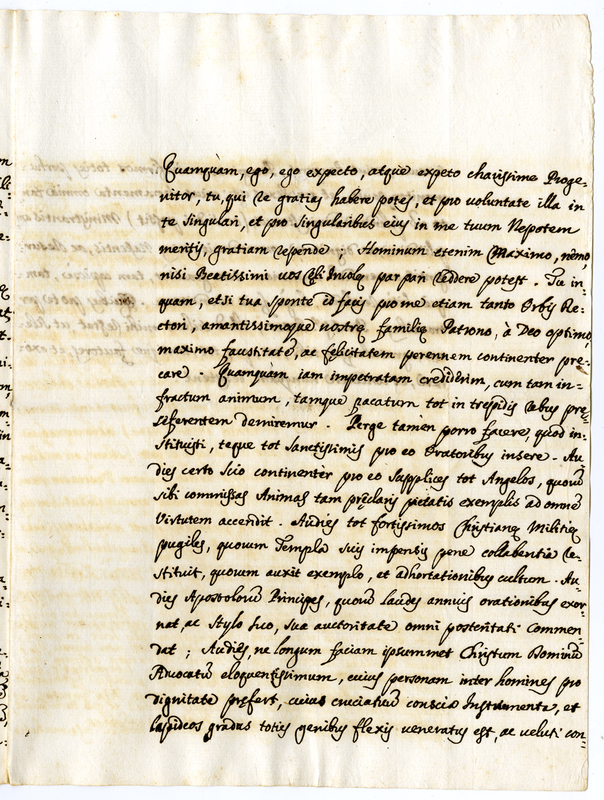 Quamquàm, ego, ego expecto, atque expeto charissime Proge-
nitor, tu, qui Re gratias habere potes, et pro voluntate illa in
te singulari, et pro singularibus eius in me tuum Nepotem
meritis, gratiam repende; Hominum etenim Maximo, nemo
nisi Beatissimi uos par pari reddere potest. Tu in-
quam, etsi tua sponte id facis pro me etiam tanto Orbis Re-
ctori, amantissimoque nostrę familię Patrono, à Deo optimo,
maximo faustitatē, ac felicitatem perennem continenter pre-
care. Quamquam iam impetratam crediderim, cum tam in-
fractum animum, tamque pacatum tot in trepidis rebus pre
seferentem demiremur. Perge tamen porro facere, quod in-
stituisti, teque tot sanctissimis pro eo oratoribus insere. Au
dies certo scio continenter pro eo supplices tot Angelos, quorū
sibi commissas Animas tam pręclaris pietatis exemplis ad omnē
Virtutem accendit. Audies tot fortissimos Christianę Militię
pugiles, quorum Templa suis impensis pene collabentia re-
stituit, quorum auxit exemplo, et adhortationibus cultum. Au-
dies Apostolorū Principes, quorū laudes annuis orationibus exor-
nat, ac stylo suo, sua auctoritate omni posteritati commen
dat; Audies, ne longum faciam ipsummet Christum Dominū
Aduocatū eloquentissimum, cuius personam inter homines pro
dignitate prefert, cuius cruciatuū conscia Instrumenta, et
lapideos gradus toties genibus flexis ueneratus est, ac veluti con-